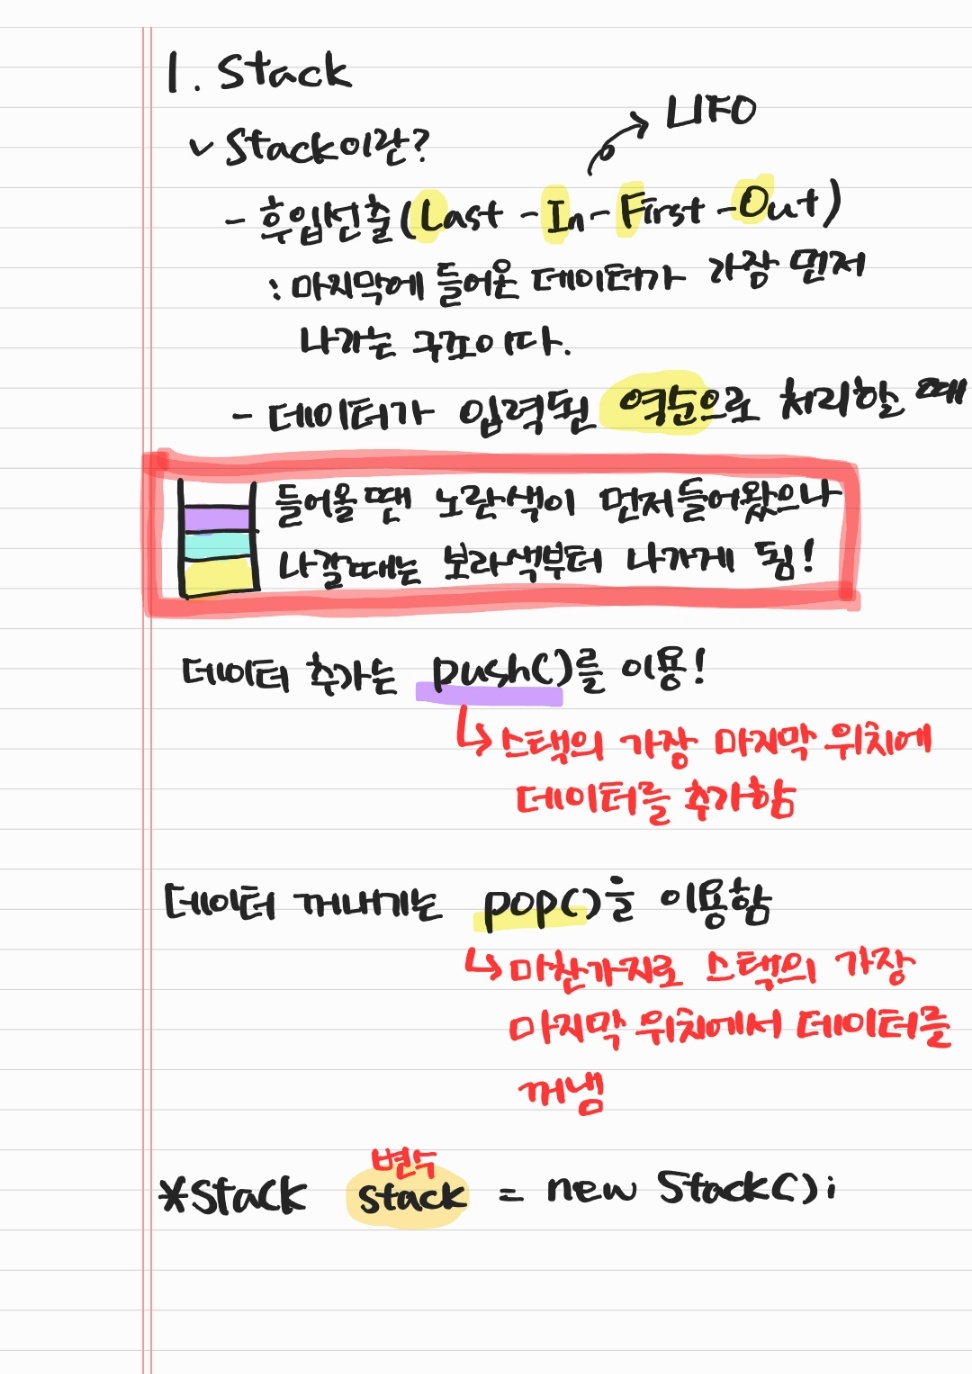 1. Stack
LIFO
✓ Stack이란?
- 후입선출(Last-In-First-Out)
: 마지막에 들어온 데이터가 가장 먼저
나가는 구조이다.
- 데이터가 입력된 역순으로 처리할 때
들어올 땐 노란색이 먼저 들어왔으나
나갈때는 보라색부터 나가게 됨!
데이터 추가는 push()를 이용!
↳ 스택의 가장 마지막 위치에
데이터를 추가함
데이터 꺼내기는 pop()을 이용함
↳ 마찬가지로 스택의 가장
마지막 위치에서 데이터를
꺼냄
변수
*Stack stack = new Stack();